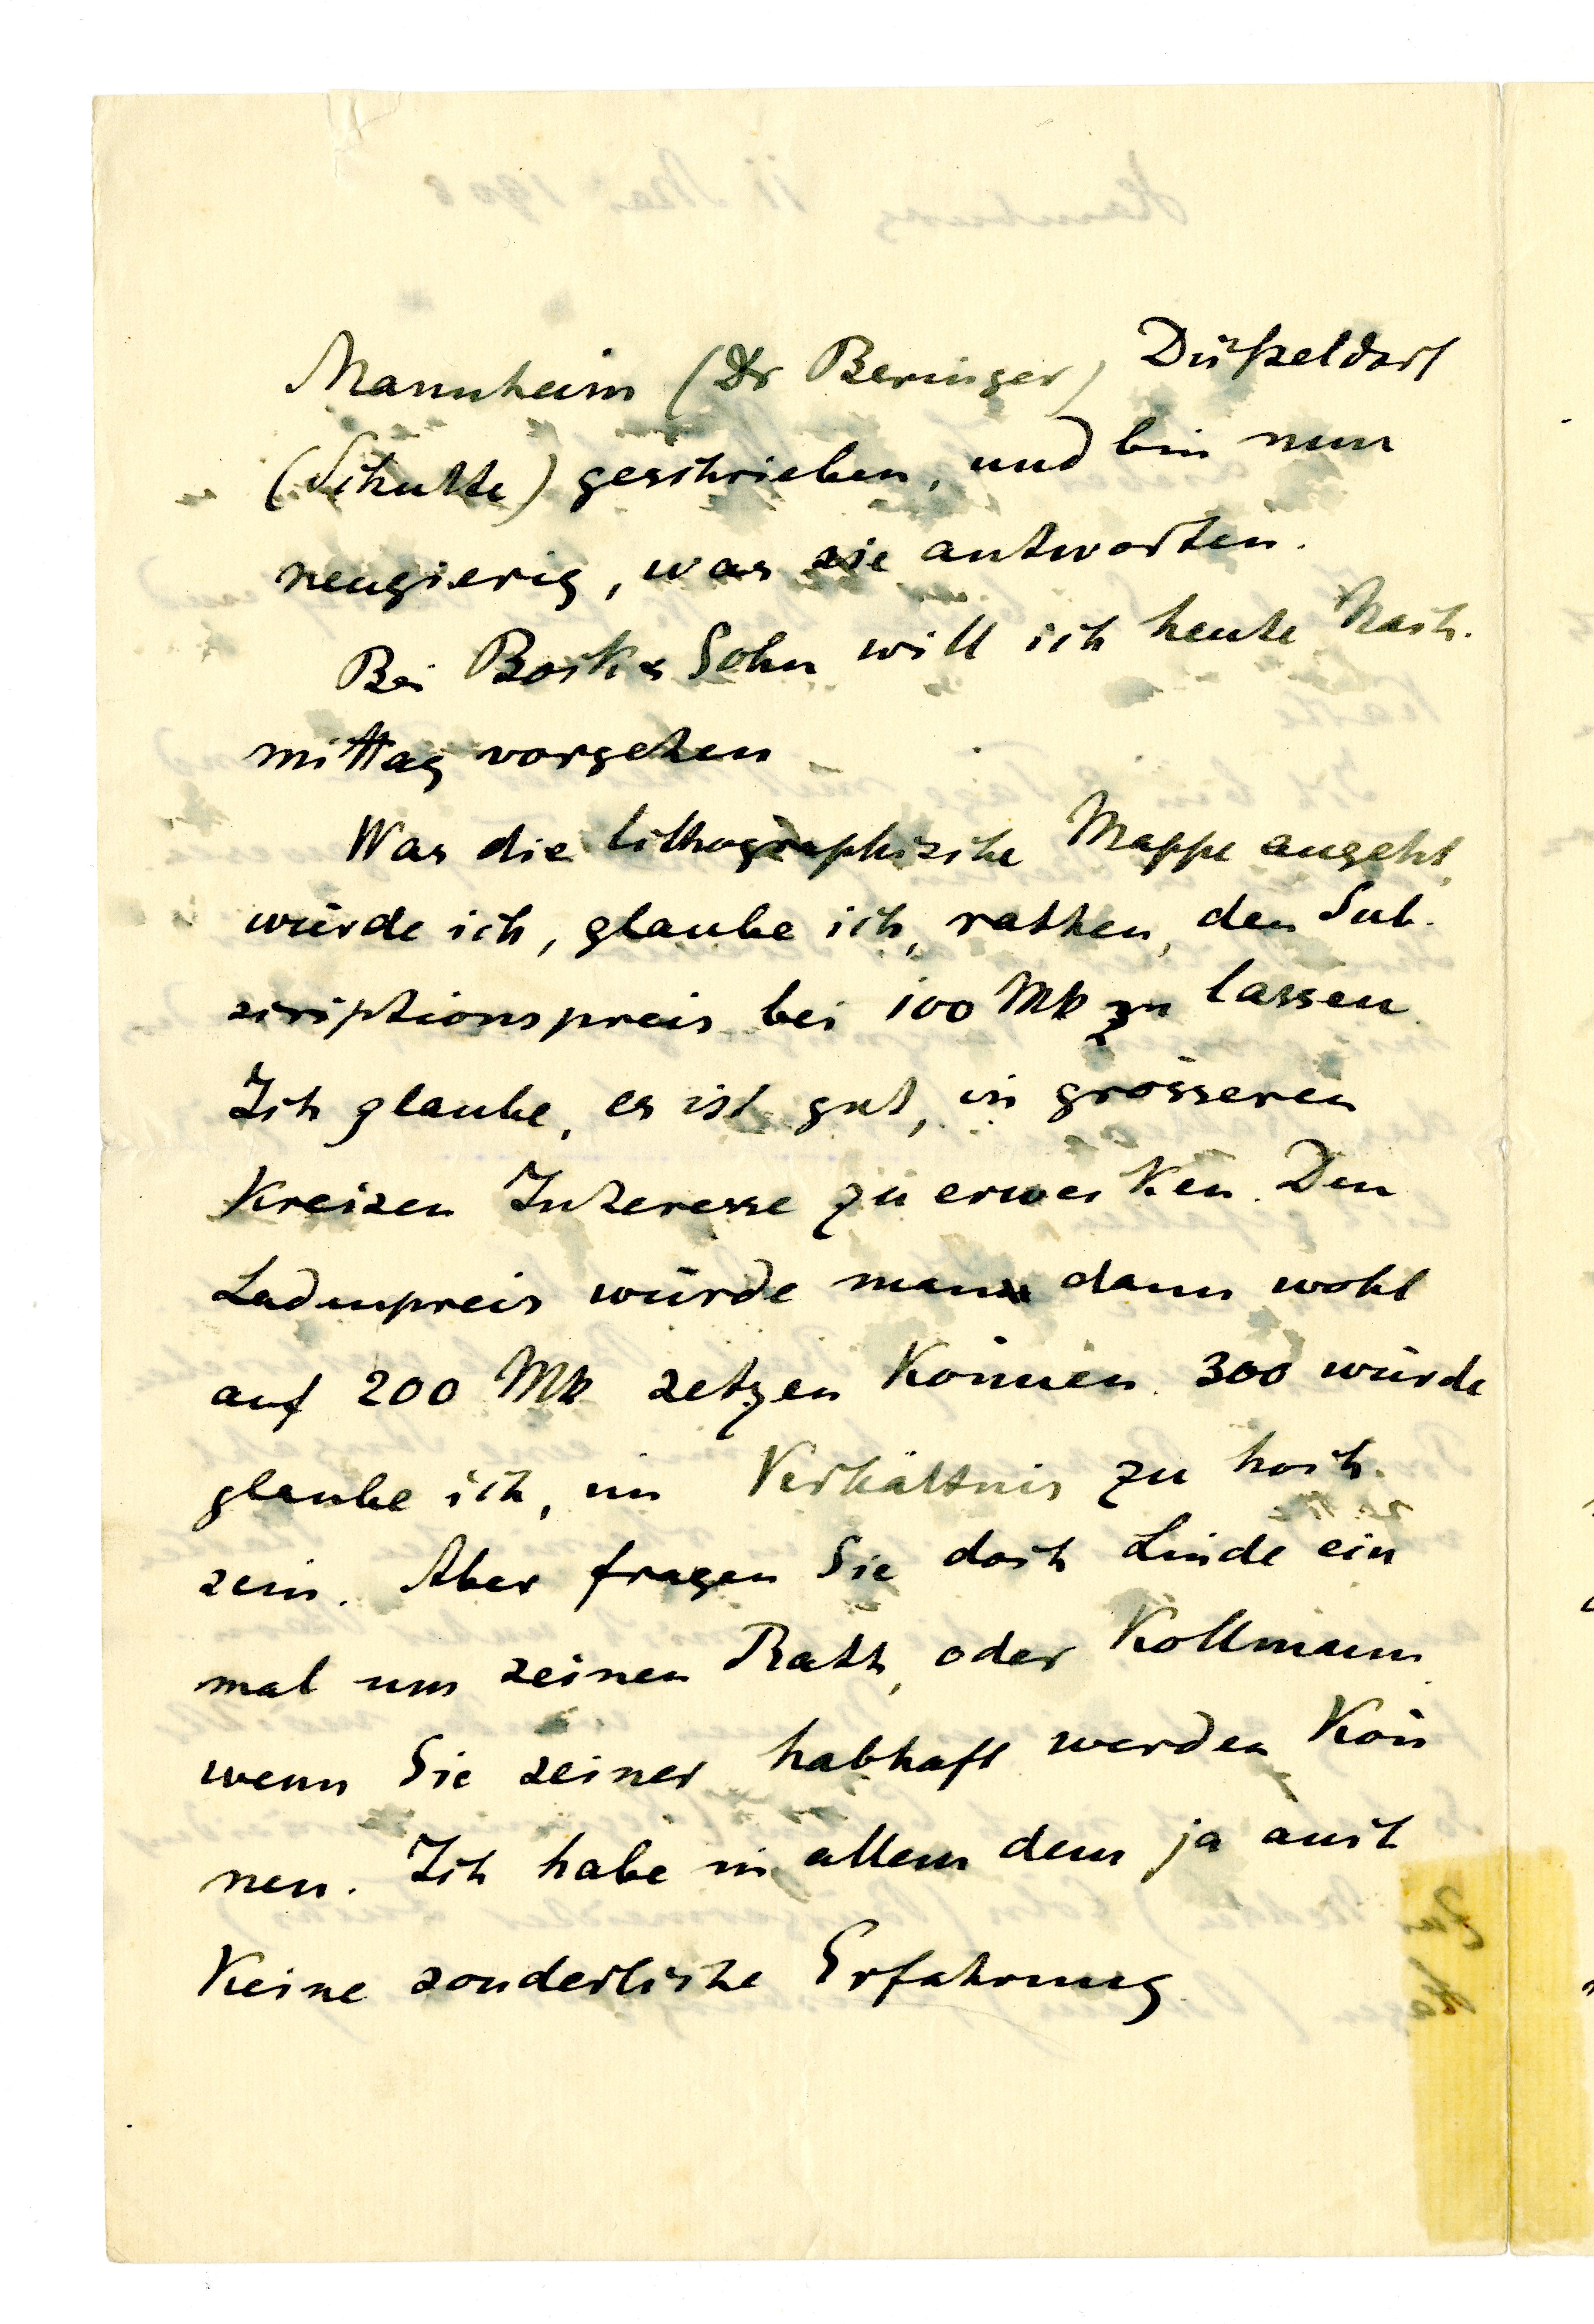 Mannheim (Dr Beringer) Düßeldorf
(Schulte) geschrieben, und bin nun
neugierig, was sie antworten.
Bei Bock & Sohn will ich heute Nach-
mittag vorgehen
Was die lithographische Mappe angeht,
würde ich, glaube ich, rathen, den Sub-
scriptionspreis bei 100 Mk zu lassen.
Ich glaube, es ist gut, in grösseren
Kreisen Interesse zu erwecken. Den
Ladenpreis würde man dann wohl
auf 200 Mk setzen können. 300 würde
glaube ich, im Verhältnis zu hoch
sein. Aber fragen Sie doch Linde ein
mal um seinen Rath, oder Kollmann,
wenn Sie seiner habhaft werden kön
nen. Ich habe in allem dem ja auch
keine sonderliche Erfahrung.